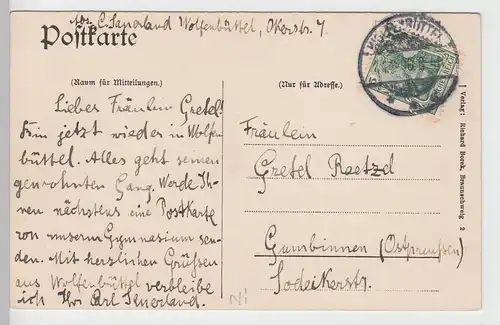 Abs. C. Sauerland Wolfenbüttel, Okerstr. 7
Postkarte
(Raum für Mitteilungen.)
(Nur für Adresse.)
Lieber Fräulein Gretel!
Bin jetzt wieder in Wolfen
büttel. Alles geht seinen
gewohnten Gang. Werde Ih-
nen nächstens eine Postkarte
von unserm Gymnasium sen-
den. Mit herzlichen Grüßen
aus Wolfenbüttel verbleibe
ich Ihr Carl Sauerland.
Fräulein
Gretel Raetzel
Gumbinnen (Ostpreußen)
Verlag: Richard Borek, Braunschweig 2